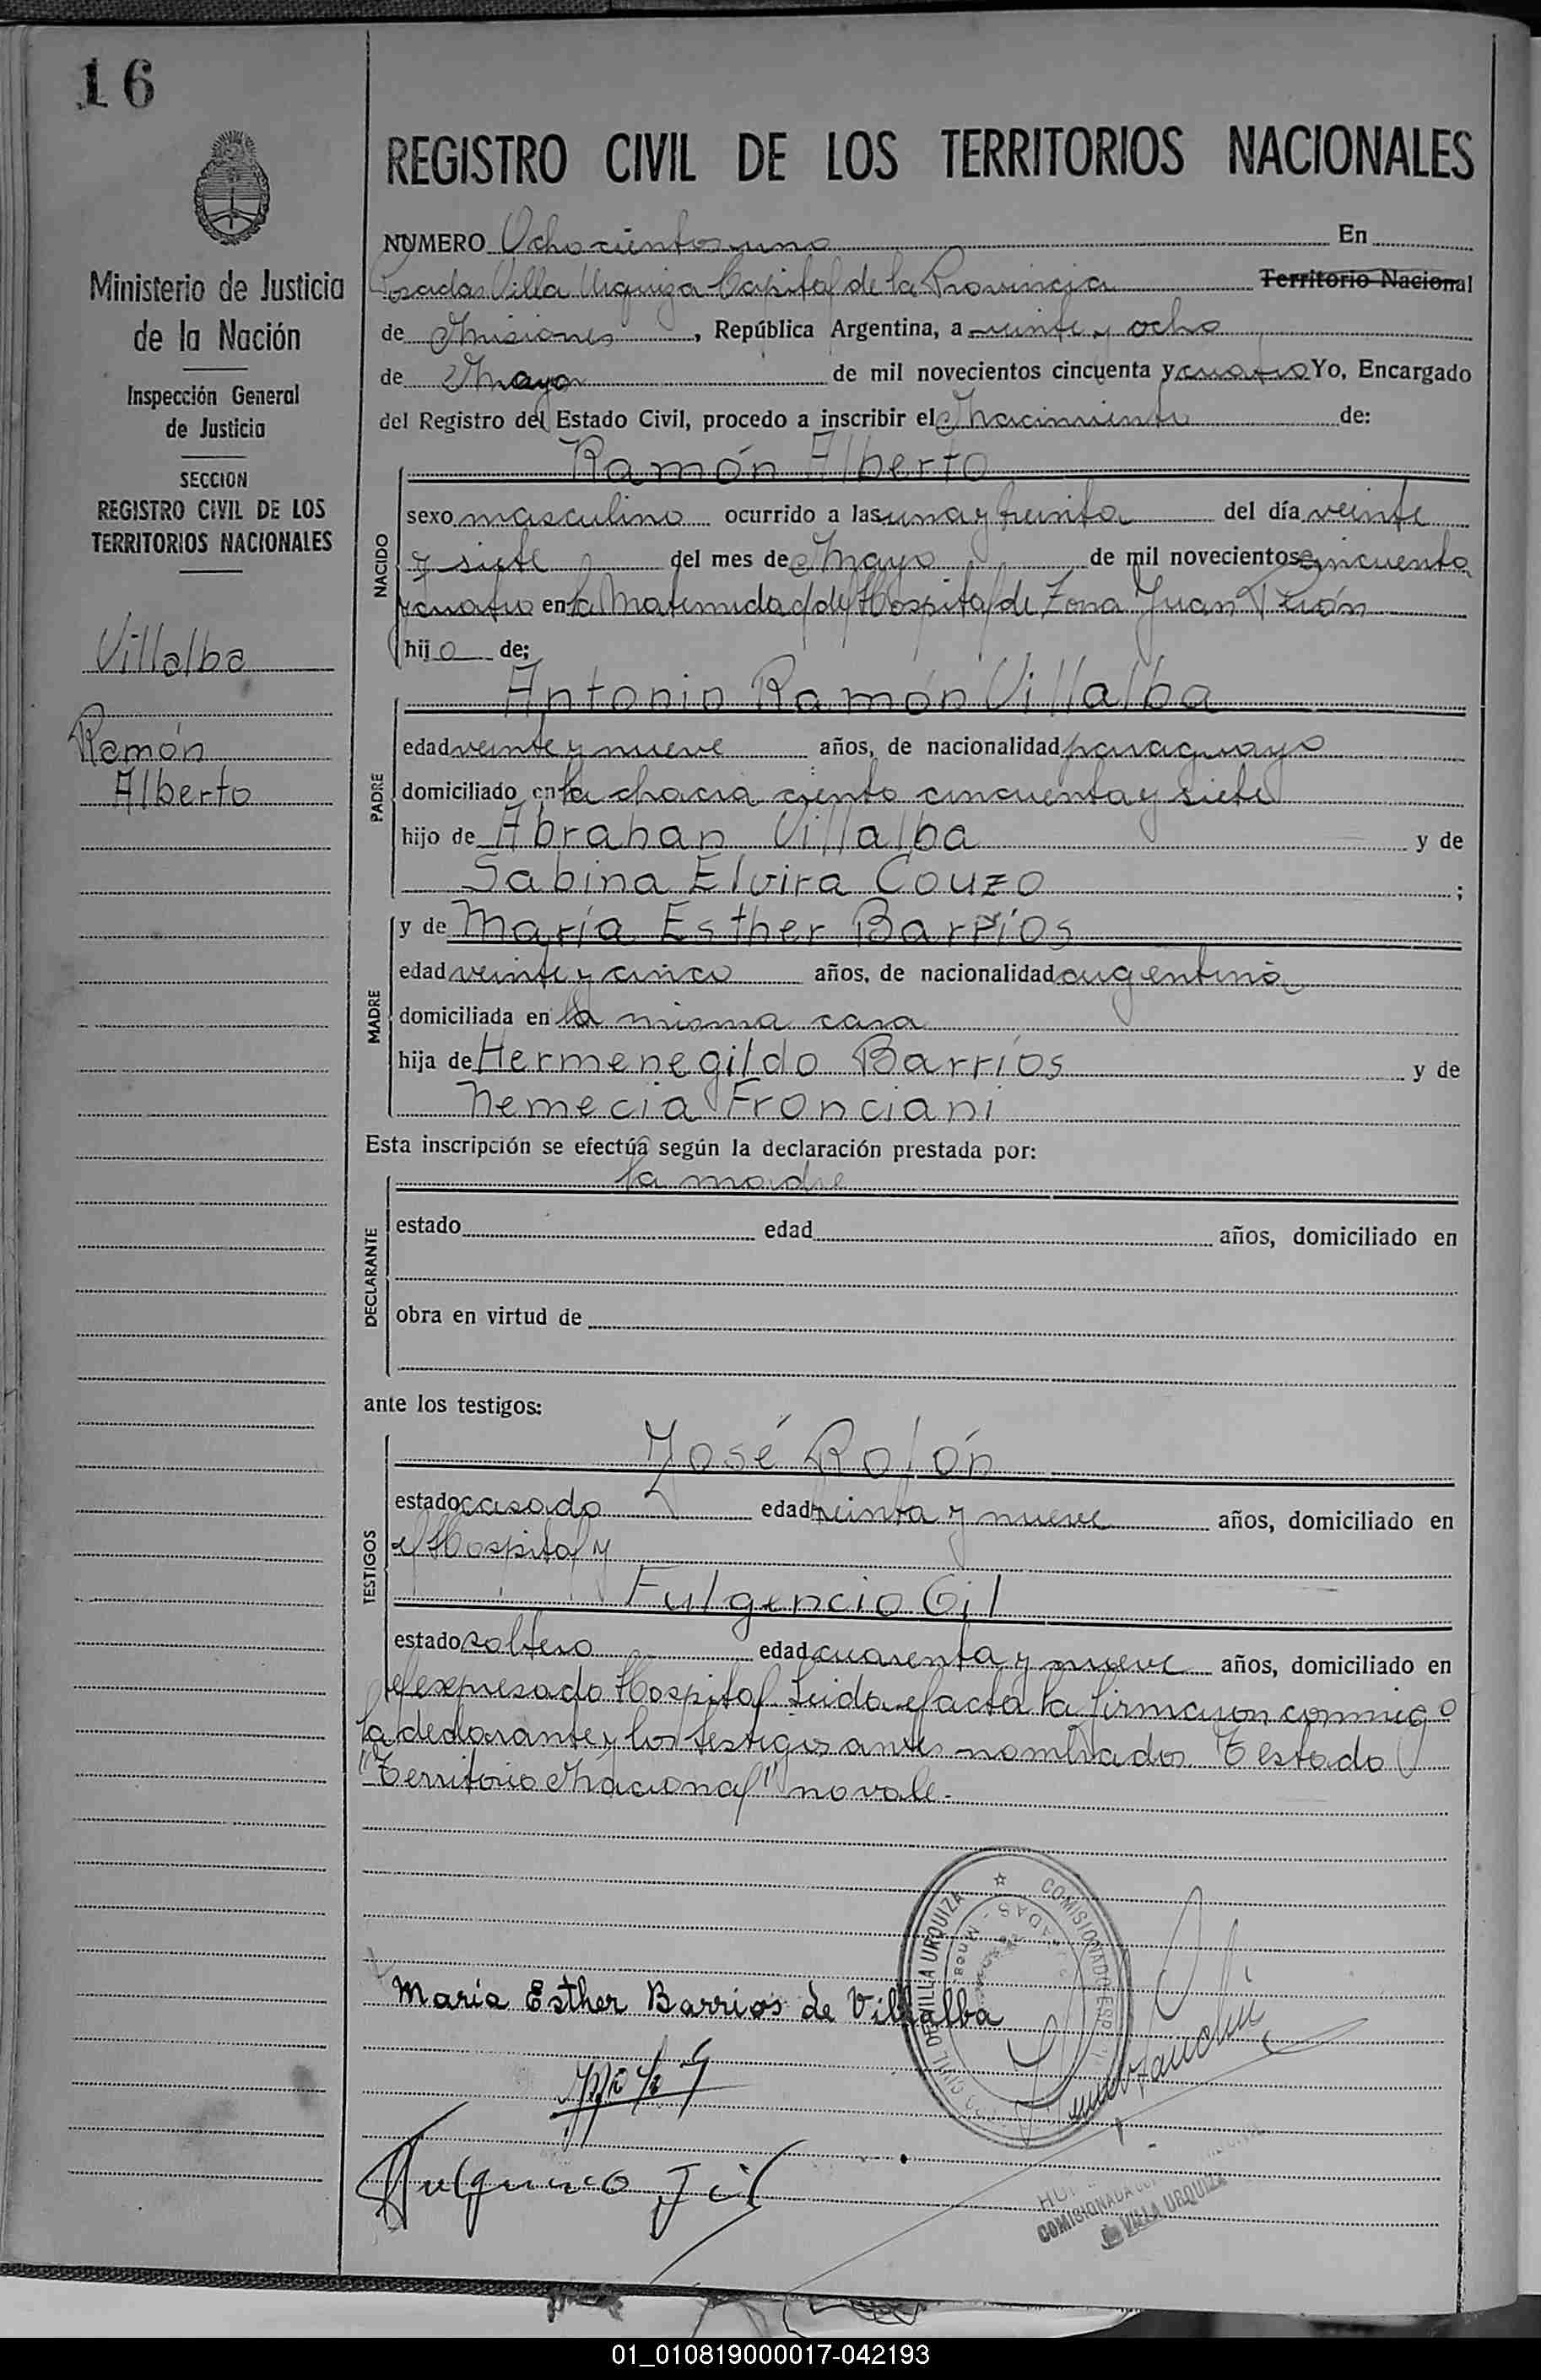 16
REGISTRO CIVIL DE LOS TERRITORIOS NACIONALES
Ministerio de Justicia
de la Nación
Inspección General
de Justicia
SECCION
REGISTRO CIVIL DE LOS
TERRITORIOS NACIONALES
Villalba
Ramón
Alberto
NUMERO Ochocientos uno En
Posadas Villa Urquiza Capital de la Provincia Territorio Nacional
de Misiones, República Argentina, a veinte y ocho
de Mayo de mil novecientos cincuenta y cuatro Yo, Encargado
del Registro del Estado Civil, procedo a inscribir el Nacimiento de:
Ramón Alberto
NACIDO
sexo masculino ocurrido a las una y treinta del día veinte
y siete del mes de Mayo de mil novecientos cincuenta
y cuatro en la Maternidad del Hospital de Zona Juan Perón
hijo de;
Antonio Ramón Villalba
PADRE
edad veinte y nueve años, de nacionalidad paraguayo
domiciliado en la chacra ciento cincuenta y siete
hijo de Abrahan Villalba y de
Sabina Elvira Couzo ;
MADRE
y de María Esther Barrios
edad veinte y cinco años, de nacionalidad argentina
domiciliada en la misma casa
hija de Hermenegildo Barrios y de
Nemecia Fronciani
Esta inscripción se efectúa según la declaración prestada por:
la madre
DECLARANTE
estado edad años, domiciliado en
obra en virtud de
ante los testigos:
José Rolón
TESTIGOS
estado casado edad treinta y nueve años, domiciliado en
el Hospital y
Fulgencio Gil
estado soltero edad cuarenta y nueve años, domiciliado en
el expresado Hospital Leida el acta la firmaron conmigo
la declarante y los testigos antes nombrados Testado
"Territorio Nacional" no vale.-
María Esther Barrios de Villalba
Fulgencio Gil
CIVIL DE VILLA URQUIZA ☆ COMISIONADO ESP
COMISIONADA
DE VILLA URQUIZA
01_010819000017-042193